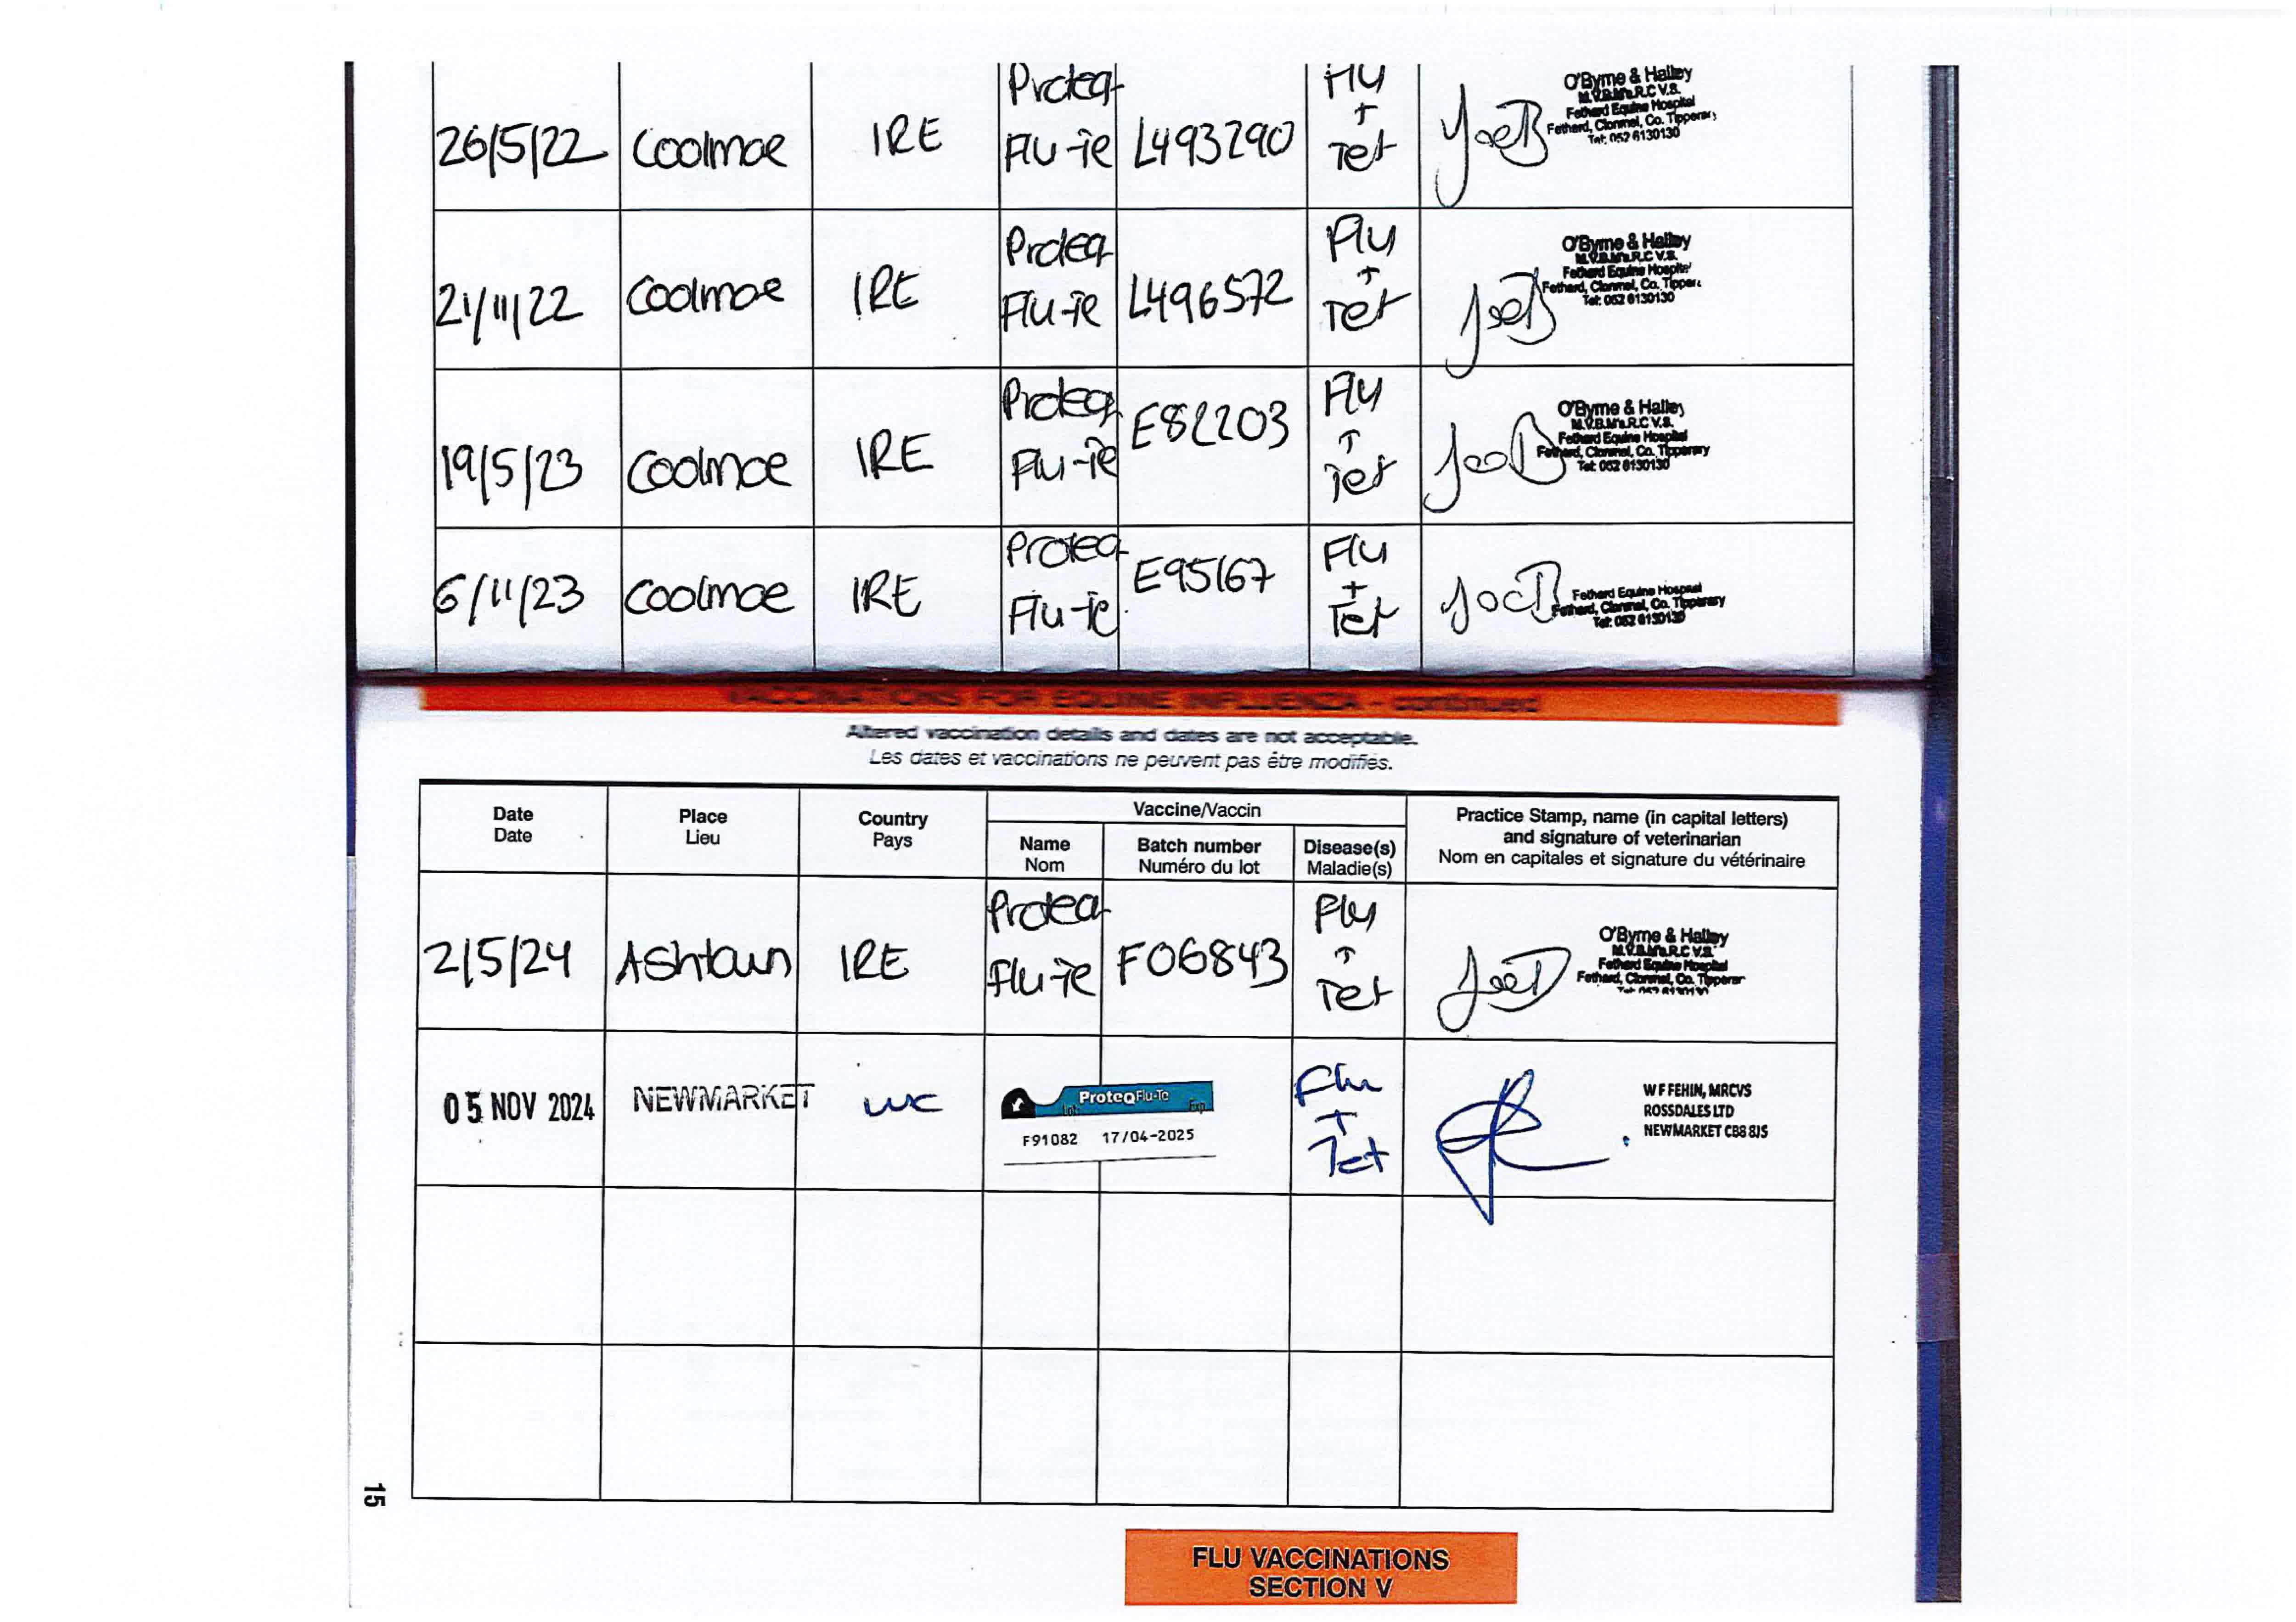 26/5/22 Coolmoe IRE Proteq Flu-Te L493290 Flu + Tet
O'Byrne & Halley
M.V.B. M's.R.C.V.S.
Fethard Equine Hospital
Fethard, Clonmel, Co. Tipperary
Tel: 052 6130130
21/11/22 Coolmoe IRE Proteq Flu-Te L496572 Flu + Tet
O'Byrne & Halley
M.V.B. M's.R.C.V.S.
Fethard Equine Hospital
Fethard, Clonmel, Co. Tipper
Tel: 052 6130130
19/5/23 Coolmoe IRE Proteq Flu-Te E82203 Flu + Tet
O'Byrne & Halley
M.V.B.M's.R.C.V.S.
Fethard Equine Hospital
Fethard, Clonmel, Co. Tipperary
Tel: 052 6130130
6/11/23 Coolmoe IRE Proteq Flu-Te E95167 Flu + Tet
Fethard Equine Hospital
Fethard, Clonmel, Co. Tipperary
Tel: 052 6130130
VACCINATIONS FOR EQUINE INFLUENZA - continued
Altered vaccination details and dates are not acceptable.
Les dates et vaccinations ne peuvent pas être modifiés.
Date
Date
Place
Lieu
Country
Pays
Vaccine/Vaccin
Name
Nom
Batch number
Numéro du lot
Disease(s)
Maladie(s)
Practice Stamp, name (in capital letters)
and signature of veterinarian
Nom en capitales et signature du vétérinaire
2/5/24 Ashtown IRE Proteq Flu-Te F06843 Flu + Tet
O'Byrne & Halley
M.V.B.M's.R.C.V.S.
Fethard Equine Hospital
Fethard, Clonmel, Co. Tipperar
Tel: 052 6130130
05 NOV 2024 NEWMARKET UK
ProteqFlu-Te
Lot: Exp
F91082 17/04-2025
Flu + Tet
W F FEHIN, MRCVS
ROSSDALES LTD
NEWMARKET CB8 8JS
15
FLU VACCINATIONS
SECTION V